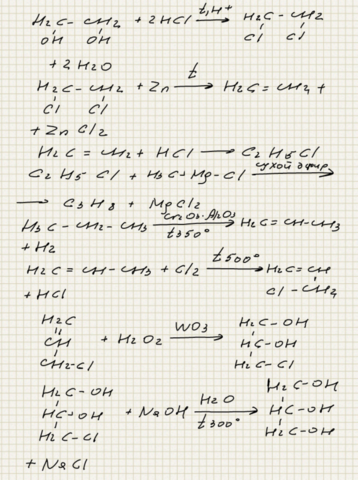 H2C - CH2 + 2HCl t,H+ → H2C - CH2
OH OH Cl Cl
+ 2H2O
H2C - CH2 + Zn t → H2C = CH2 +
Cl Cl
+ ZnCl2
H2C = CH2 + HCl → C2H5Cl
C2H5Cl + H3C-Mg-Cl сухой эфир →
→ C3H8 + MgCl2
H3C - CH2 - CH3 Cr2O3·Al2O3 t350° → H2C = CH-CH3
+ H2
H2C = CH - CH3 + Cl2 t500° → H2C = CH
+ HCl Cl - CH2
H2C
CH + H2O2 WO3 →
CH2-Cl
H2C-OH
HC-OH
H2C-Cl
H2C-OH
HC-OH + NaOH H2O t300° →
H2C-Cl
H2C-OH
HC-OH
H2C-OH
+ NaCl